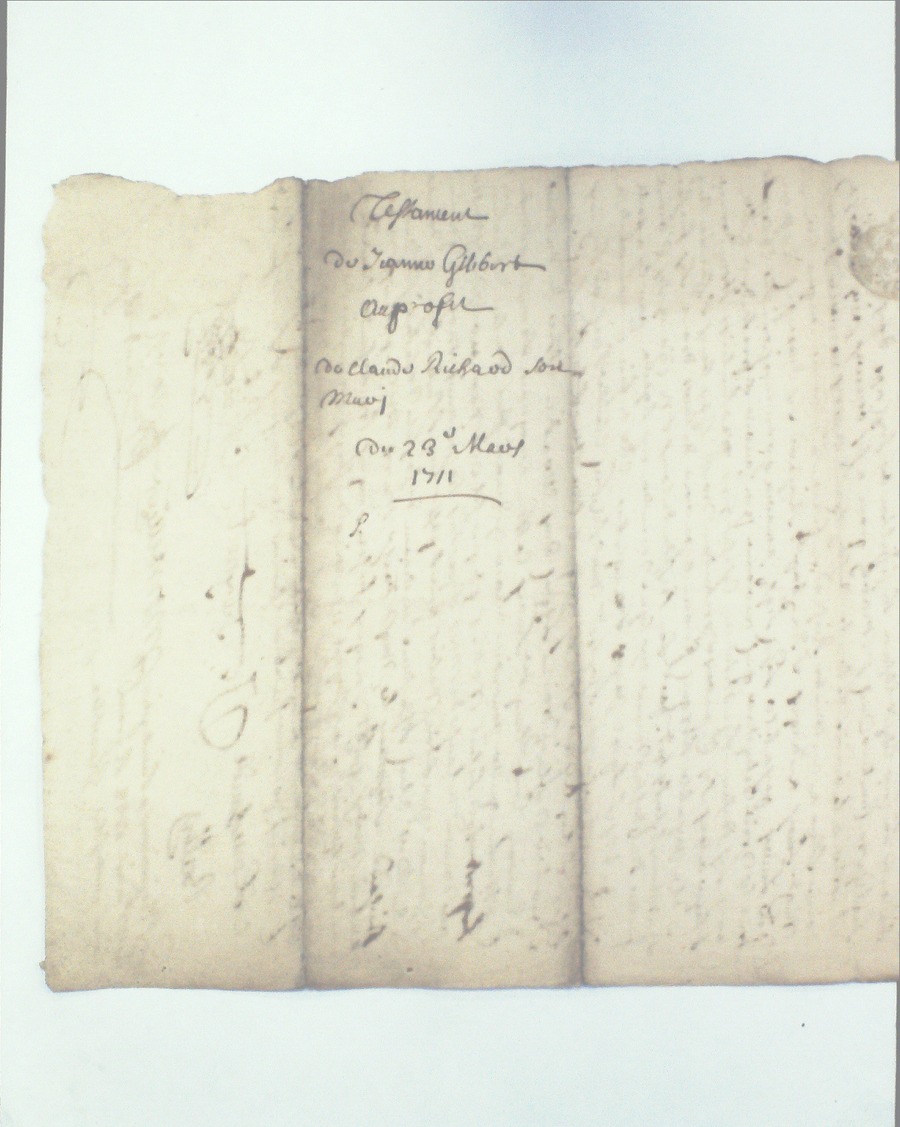 Testament
de Jeanne Gilibert
Au profit
de Claude Richard son
Mary
du 23e Mars
1711
P.